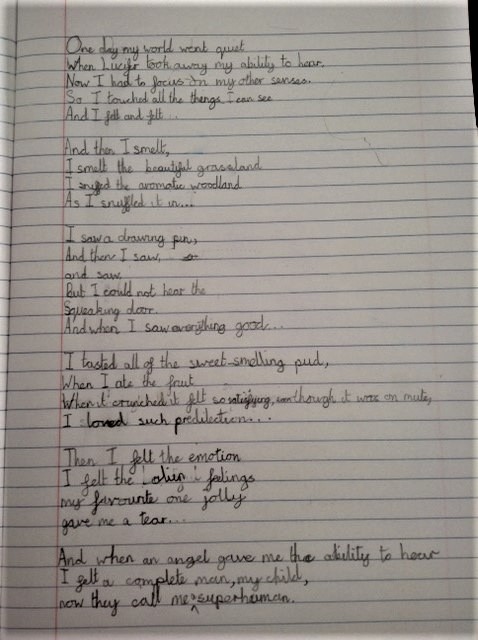 One day my world went quiet
When Lucifer took away my ability to hear.
Now I had to focus on my other senses.
So I touched all the things I can see
And I felt and felt...
And then I smelt,
I smelt the beautiful grassland
I sniffed the aromatic woodland
As I snuffled it in...
I saw a drawing pin,
And then I saw,
and saw,
But I could not hear the
Squeaking door.
And when I saw everything good...
I tasted all of the sweet-smelling pud,
When I ate the fruit
When it crunched it felt so satisfying, even though it was on mute,
I loved such predilection...
Then I felt the emotion
I felt the alien feelings
my favourite one jolly
gave me a tear...
And when an angel gave me the ability to hear
I felt a complete man, my child,
now they call me superhuman.